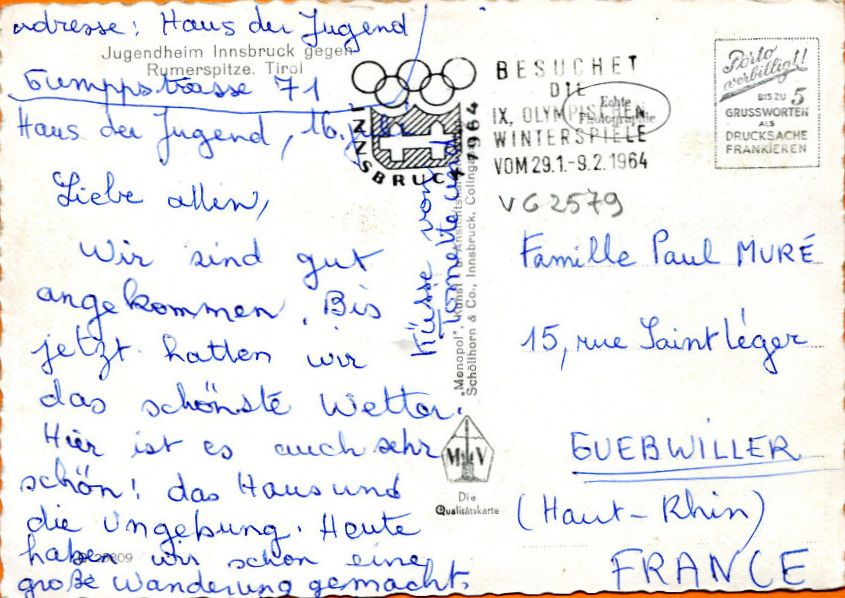 adresse: Haus der Jugend
Jugendheim Innsbruck gegen
Rumerspitze. Tirol
Gumppstrasse 71
Haus der Jugend, 16.
Liebe allen,
Wir sind gut
angekommen. Bis
jetzt hatten wir
das schönste Wetter.
Hier ist es auch sehr
schön! das Haus und
die Umgebung. Heute
haben wir schon eine
große Wanderung gemacht.
Küsse von
INNSBRUCK 1964
BESUCHET
DIE
IX. OLYMPISCHEN
WINTERSPIELE
VOM 29.1.-9.2.1964
Echte
Photographie
Porto
verbilligt!
BIS ZU 5
GRUSSWORTEN
ALS
DRUCKSACHE
FRANKIEREN
VG2579
"Monopol", Kunst
Schöllhorn & Co., Innsbruck
M V
Die
Qualitätskarte
Famille Paul MURÉ
15, rue Saint Léger
GUEBWILLER
(Haut-Rhin)
FRANCE